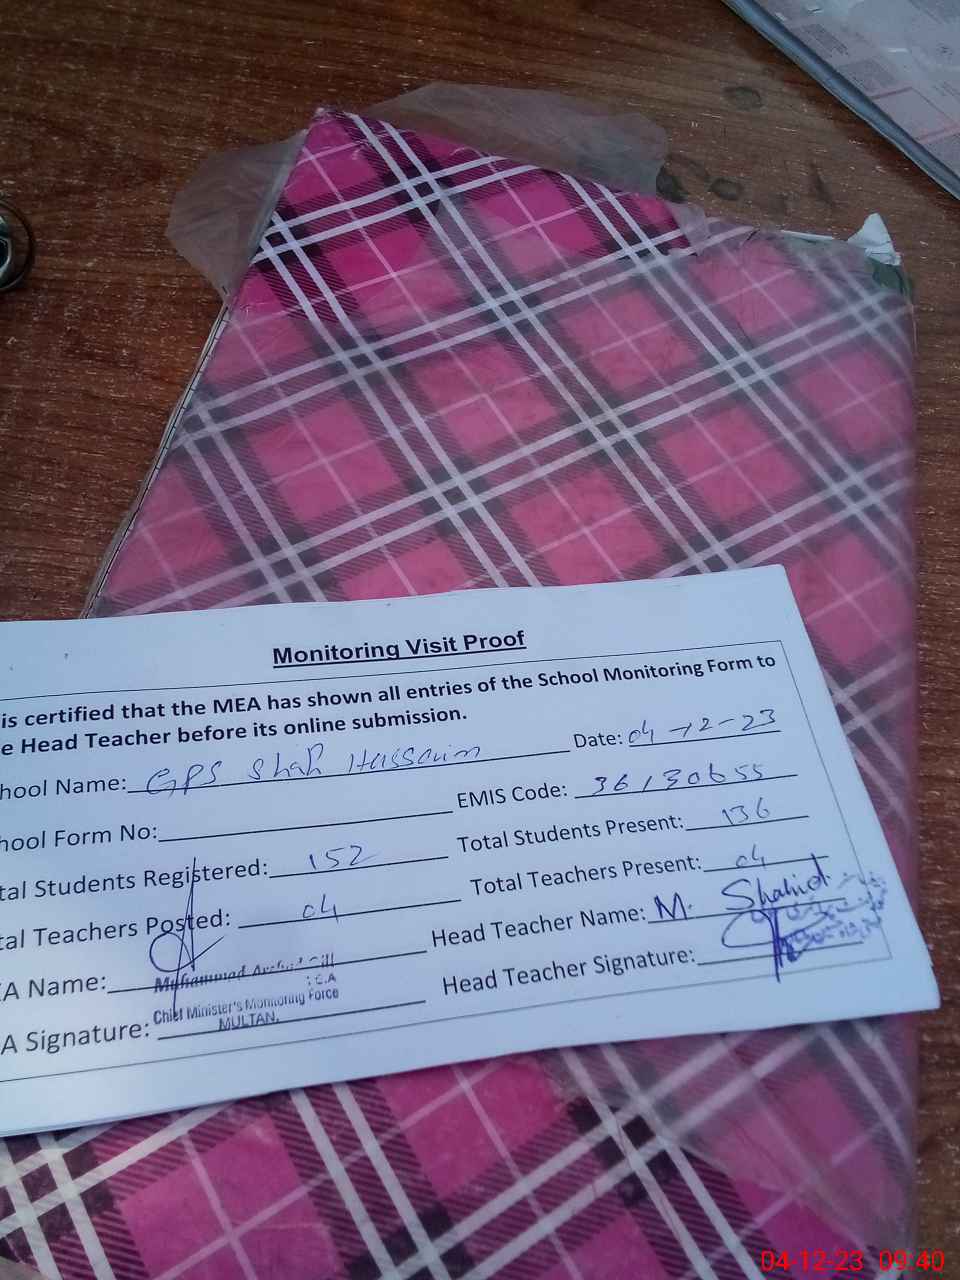 Monitoring Visit Proof
is certified that the MEA has shown all entries of the School Monitoring Form to
e Head Teacher before its online submission.
hool Name: GPS Shah Hussain Date: 04-12-23
hool Form No: EMIS Code: 36130655
tal Students Registered: 152 Total Students Present: 136
tal Teachers Posted: 04 Total Teachers Present: 04
A Name: Muhammad Head Teacher Name: M. Shahid
A Signature: Chief Minister's Monitoring Force Head Teacher Signature:
MULTAN.
04-12-23 09:40